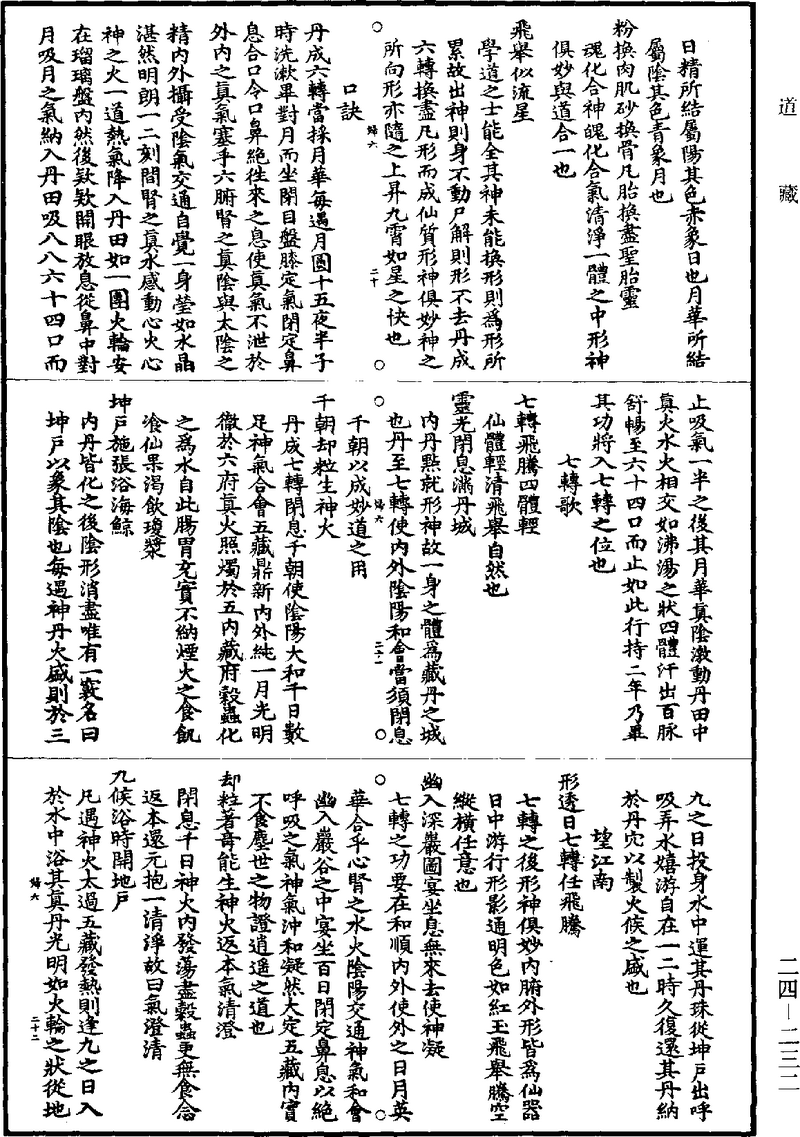 道藏
日精所結屬陽其色赤象日也月華所結
屬陰其色青象月也
粉換肉肌砂換骨凡胎換盡聖胎靈
魂化合神魄化合氣清淨一體之中形神
俱妙與道合一也
飛舉似流星
學道之士能全其神未能換形則爲形所
累故出神則身不動尸解則形不去丹成
六轉換盡凡形而成仙質形神俱妙神之
所向形亦隨之上昇九霄如星之快也
歸六 二十
口訣
丹成六轉當採月華每遇月圓十五夜半子
時洗漱畢對月而坐閉目盤膝定氣閉定鼻
息合口令口鼻絶徃來之息使真氣不泄於
外内之真氣塞乎六腑腎之真陰與太陰之
精内外攝受陰氣交通自覺一身瑩如水晶
湛然明朗一二刻間腎之真水感動心火心
神之火一道熱氣降入丹田如一團火輪安
在瑠璃盤内然後欵欵開眼放息從鼻中對
月吸月之氣納入丹田吸八八六十四口而
止吸氣一半之後其月華真陰激動丹田中
真火水火相交如沸湯之狀四體汗出百脉
舒暢至六十四口而止如此行持二年乃畢
其功將入七轉之位也
七轉歌
七轉飛騰四體輕
仙體輕清飛舉自然也
靈光閉息滿丹城
内丹點就形神故一身之體爲藏丹之城
也丹至七轉使内外陰陽和會當須閉息
歸六 二十一
千朝以成妙道之用
千朝却粒生神火
丹成七轉閉息千朝使陰陽大和千日數
足神氣合會五藏鼎新内外純一月光明
徹於六府真火照燭於五内藏府穀蟲化
之爲水自此腸胃充實不納煙火之食飢
飡仙果渴飲瓊漿
坤戸施張浴海鯨
内丹皆化之後陰形消盡唯有一竅名曰
坤戸以象其陰也每遇神丹火盛則於三
九之日投身水中運其丹珠從坤戸出呼
吸弄水嬉游自在一二時久復還其丹納
於丹穴以製火候之盛也
望江南
形透日七轉任飛騰
七轉之後形神俱妙内腑外形皆爲仙器
日中游行形影通明色如紅玉飛舉騰空
縱橫任意也
幽入深巖圖宴坐息無來去使神凝
七轉之功要在和順内外使外之日月英
華合乎心腎之水火陰陽交通神氣和會
幽入巖谷之中宴坐百日閉定鼻息以絶
呼吸之氣神氣沖和凝然大定五藏内實
不食塵世之物證逍遥之道也
却粒著竒能生神火返本氣清澄
閉息千日神火内發蕩盡穀蟲更無食念
返本還元抱一清淨故曰氣澄清
九候浴時開地戸
凡遇神火太過五藏發熱則逢九之日入
於水中浴其真丹光明如火輪之狀從地
歸六 二十二
二四—二三二